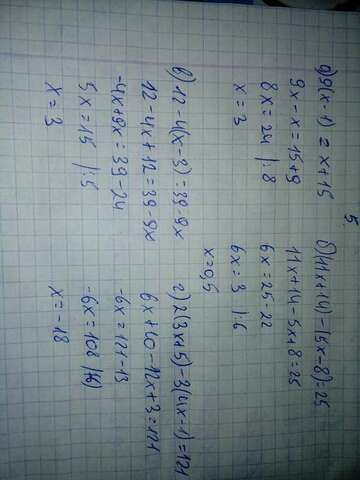 5.
а) 9(x-1) = x+15
9x-x=15+9
8x=24 |:8
x=3
б) (11x+14)-(5x-8)=25
11x+14-5x+8=25
6x=25-22
6x=3 |:6
x=0,5
в) 12-4(x-3)=39-9x
12-4x+12=39-9x
-4x+9x=39-24
5x=15 |:5
x=3
г) 2(3x+5)-3(4x-1)=121
6x+10-12x+3=121
-6x=121-13
-6x=108 /(6)
x=-18